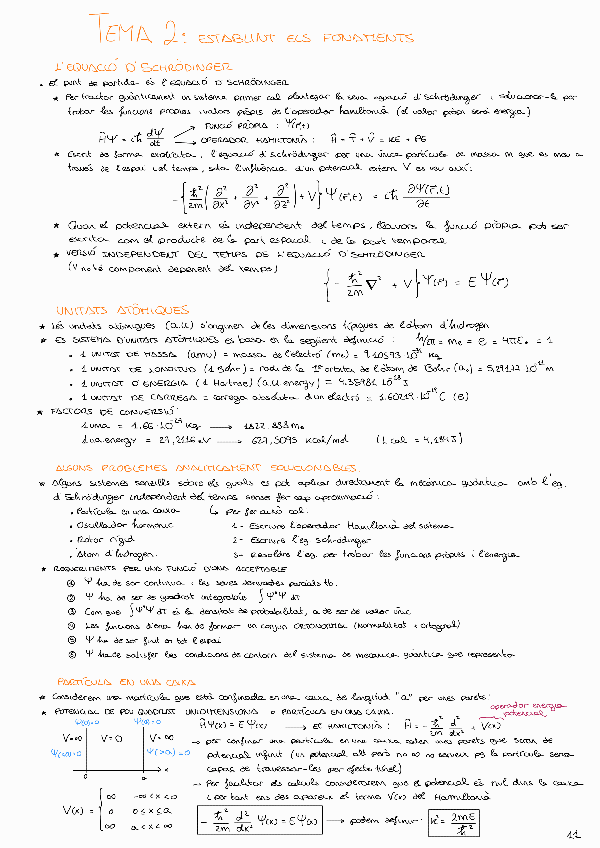 TEMA 2: ESTABLINT ELS FONAMENTS
L'EQUACIÓ D'SCHRÖDINGER
• El punt de partida és l'EQUACIÓ D'SCHRÖDINGER
★ Per tractar quànticament un sistema primer cal plantejar la seva equació d'Schrödinger i solucionar-la per
trobar les funcions pròpies i valors propis de l'operador hamiltonià (el valor propi serà energia)
ĤΨ = iħ dΨ/dt → FUNCIÓ PRÒPIA: Ψ(r,t)
→ OPERADOR HAMILTONIÀ: Ĥ = T̂ + V̂ = KE + PE
★ Escrit de forma explícita, l'equació d'Schrödinger per una única partícula de massa m que es mou a
través de l'espai i el temps, sota l'influència d'un potencial extern V es veu així:
{-ħ²/2m (∂²/∂x² + ∂²/∂y² + ∂²/∂z²) + V} Ψ(r,t) = iħ ∂Ψ(r,t)/∂t
★ Quan el potencial extern és independent del temps, llavors la funció pròpia pot ser
escrita com el producte de la part espacial i de la part temporal
★ VERSIÓ INDEPENDENT DEL TEMPS DE L'EQUACIÓ D'SCHRÖDINGER
(V no té component depenent del temps) {-ħ²/2m ∇² + V} Ψ(r) = E Ψ(r)
UNITATS ATÒMIQUES
★ Les unitats atòmiques (a.u.) s'originen de les dimensions típiques de l'àtom d'hidrogen
★ ES SISTEMA D'UNITATS ATÒMIQUES es basa en la següent definició:
• 1 UNITAT DE MASSA (amu) = massa de l'electró (me) = 9.10593 10⁻³¹ Kg
• 1 UNITAT DE LONGITUD (1 Bohr) = radi de la 1ª òrbita de l'àtom de Bohr (a₀) = 5,29172 10⁻¹¹ m
• 1 UNITAT D'ENERGIA (1 Hartree) (a.u. energy) = 4.35981 10⁻¹⁸ J
• 1 UNITAT DE CÀRREGA = càrrega absoluta d'un electró = 1.60219·10⁻¹⁹ C (e)
★ FACTORS DE CONVERSIÓ:
1 uma = 1.66·10⁻²⁷ Kg → 1822.888 me
1 ua energy = 27,2116 eV → 627,5095 Kcal/mol (1 cal = 4,184 J)
ALGUNS PROBLEMES ANALÍTICAMENT SOLUCIONABLES
★ Alguns sistemes senzills sobre els quals es pot aplicar directament la mecànica quàntica amb l'eq.
d'Schrödinger independent del temps sense fer cap aproximació:
• Partícula en una caixa ↳ per fer això cal:
• Oscil·lador harmònic 1- Escriure l'operador Hamiltonià del sistema
• Rotor rígid 2- Escriure l'eq. Schrödinger
• Àtom d'hidrogen. 3- Resoldre l'eq. per trobar les funcions pròpies i l'energia
★ REQUERIMENTS PER UNA FUNCIÓ D'ONA ACCEPTABLE
① Ψ ha de ser contínua i les seves derivades parcials tb.
② Ψ ha de ser de quadrat integrable ∫Ψ*Ψ dτ
③ Com que ∫Ψ*Ψ dτ és la densitat de probabilitat, ha de ser de valor únic
④ Les funcions d'ona han de formar un conjunt ORTONORMAL (Normalitzat + ortogonal)
⑤ Ψ ha de ser finit en tot l'espai
⑥ Ψ ha de satisfer les condicions de contorn del sistema de mecànica quàntica que representa
PARTÍCULA EN UNA CAIXA
★ Considerem una partícula que està confinada en una caixa de longitud "a" per unes parets:
operador energia
potencial
★ POTENCIAL DE POU QUADRAT UNIDIMENSIONAL o PARTÍCULA EN UNA CAIXA:
Ψ(0)=0 Ψ(a)=0 ĤΨ(x) = EΨ(x) → el HAMILTONIÀ: Ĥ = -ħ²/2m d²/dx² + V(x)
V=∞ V=0 V=∞
Ψ(x<0)=0 Ψ(x>a)=0
0 a x
→ per confinar una partícula en una caixa calen unes parets que siguin de
potencial infinit (un potencial alt però no ∞ no serveix pq la partícula seria
capaç de travessar-les per efecte túnel)
→ Per facilitar els càlculs considerarem que el potencial és nul dins la caixa
i per tant ens desapareix el terme V(x) del Hamiltonià
V(x) = { ∞ -∞<x<0
0 0≤x≤a
∞ a<x<∞
-ħ²/2m d²/dx² Ψ(x) = EΨ(x) → podem definir: K² = 2mE/ħ²
1.1